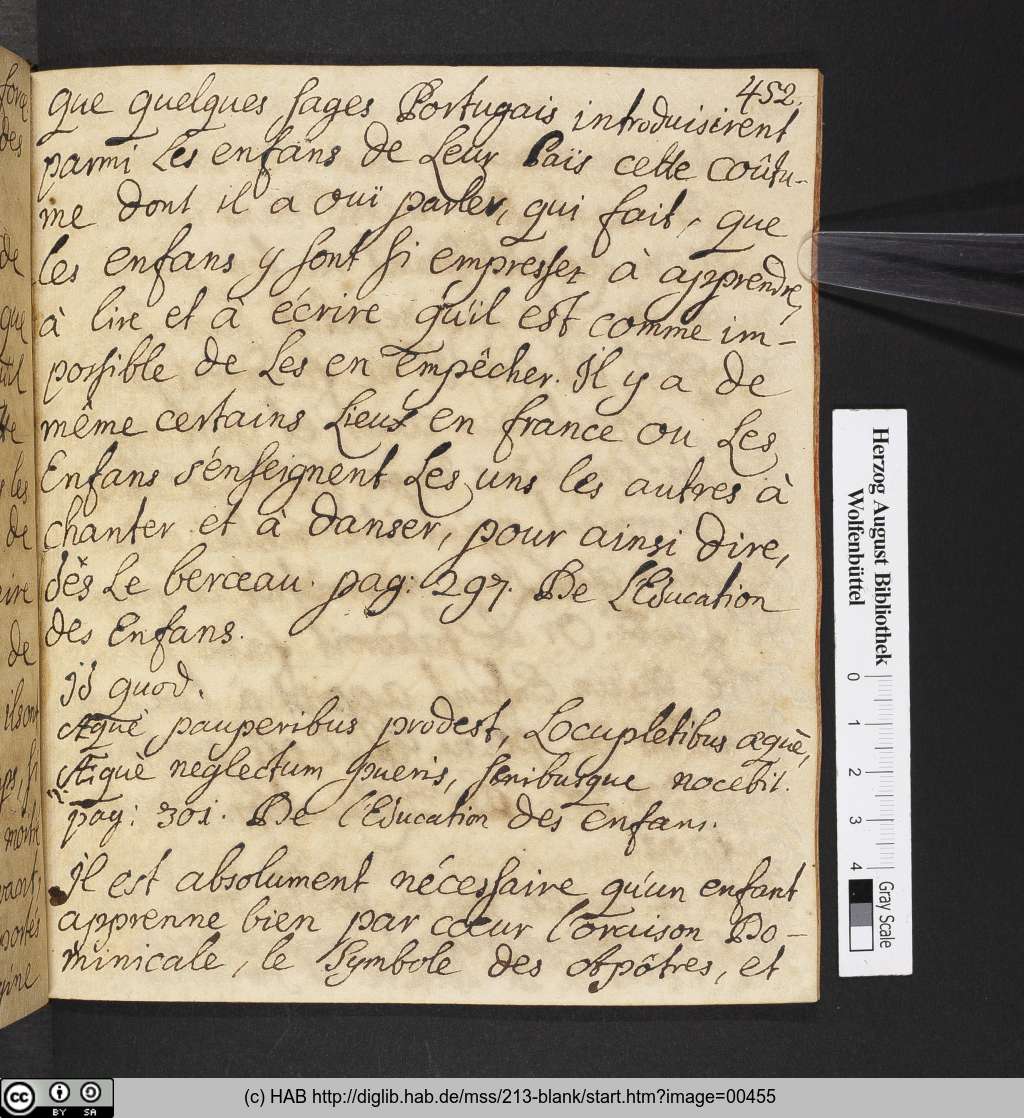 452.
que quelques sages Portugais introduisirent
parmi les enfans de leur Païs cette coûtu-
me dont il a ouï parler, qui fait, que
les enfans y sont si empressez à apprendre,
à lire et à écrire qu'il est comme im-
possible de les en empêcher. Il y a de
même certains Lieux en france ou Les
Enfans s'enseignent Les uns les autres à
chanter et à danser, pour ainsi dire,
dés Le berceau. pag: 297. De l'Education
des Enfans.
Id quod.
Æquè pauperibus prodest, Locupletibus æquè,
Æquè neglectum pueris, senibusque nocebit.
pag: 301. De l'Education des enfans.
Il est absolument nécessaire qu'un enfant
apprenne bien par cœur l'oraison Do-
minicale, le Symbole des Apôtres, et
Herzog August Bibliothek
Wolfenbüttel
0 1 2 3 4
Gray Scale
cc BY SA
(c) HAB http://diglib.hab.de/mss/213-blank/start.htm?image=00455